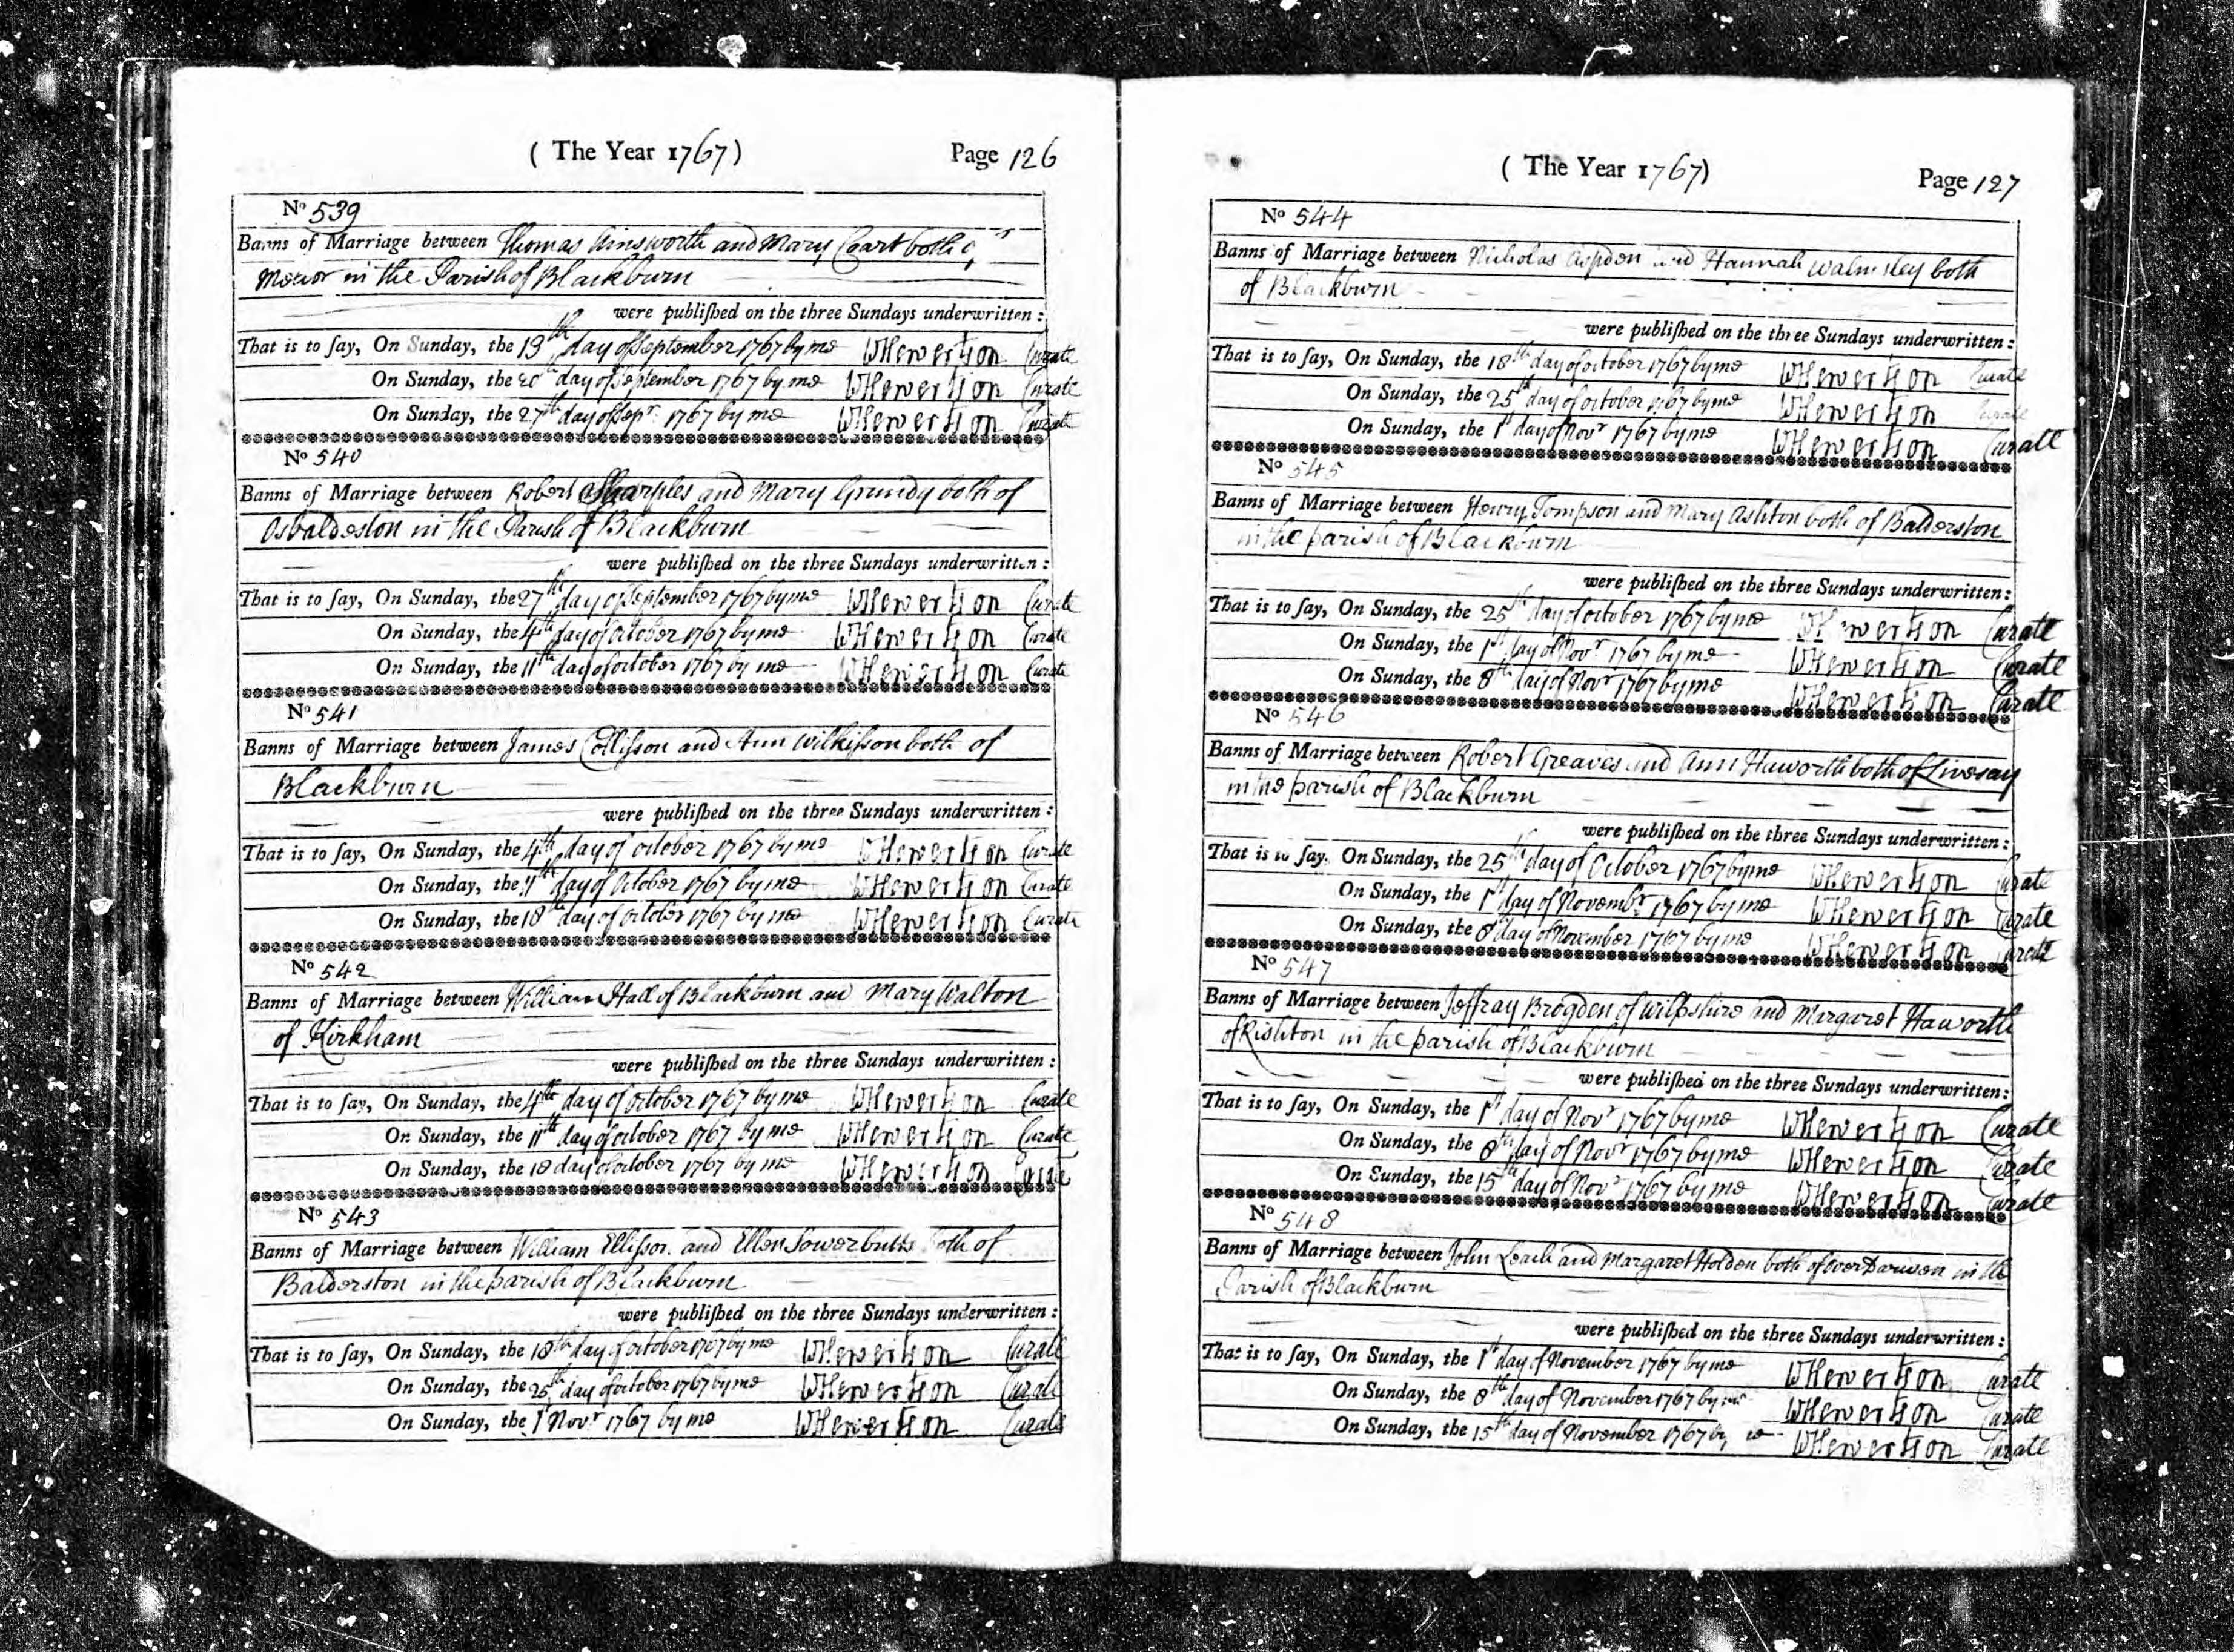 ( The Year 1767)
Page 126
No 539
Banns of Marriage between Thomas Ainsworth and Mary Cart both of
Mellor in the Parish of Blackburn
were published on the three Sundays underwritten :
That is to say, On Sunday, the 13th day of September 1767 by me WHewertson Curate
On Sunday, the 20th day of September 1767 by me WHewertson Curate
On Sunday, the 27th day of Sepr 1767 by me WHewertson Curate
No 540
Banns of Marriage between Robert Sharples and Mary Grundy both of
Osbaldeston in the Parish of Blackburn
were published on the three Sundays underwritten :
That is to say, On Sunday, the 27th day of September 1767 by me WHewertson Curate
On Sunday, the 4th day of october 1767 by me WHewertson Curate
On Sunday, the 11th day of october 1767 by me WHewertson Curate
No 541
Banns of Marriage between James Collisson and Ann Wilkisson both of
Blackburn
were published on the three Sundays underwritten :
That is to say, On Sunday, the 4th day of october 1767 by me WHewertson Curate
On Sunday, the 11th day of October 1767 by me WHewertson Curate
On Sunday, the 18th day of october 1767 by me WHewertson Curate
No 542
Banns of Marriage between William Hall of Blackburn and Mary Walton
of Kirkham
were published on the three Sundays underwritten :
That is to say, On Sunday, the 4th day of october 1767 by me WHewertson Curate
On Sunday, the 11th day of october 1767 by me WHewertson Curate
On Sunday, the 18 day of october 1767 by me WHewertson Curate
No 543
Banns of Marriage between William Ellisson and Ellen Sowerbutts both of
Balderston in the parish of Blackburn
were published on the three Sundays underwritten :
That is to say, On Sunday, the 18th day of october 1767 by me WHewertson Curate
On Sunday, the 25th day of october 1767 by me WHewertson Curate
On Sunday, the 1 Novr 1767 by me WHewertson Curate
( The Year 1767)
Page 127
No 544
Banns of Marriage between Nicholas Aspden and Hannah Walmsley both
of Blackburn
were published on the three Sundays underwritten :
That is to say, On Sunday, the 18th day of october 1767 by me WHewertson Curate
On Sunday, the 25th day of october 1767 by me WHewertson Curate
On Sunday, the 1st day of Novr 1767 by me WHewertson Curate
No 545
Banns of Marriage between Henry Tompson and Mary Ashton both of Balderston
in the parish of Blackburn
were published on the three Sundays underwritten:
That is to say, On Sunday, the 25th day of october 1767 by me WHewertson Curate
On Sunday, the 1st day of Novr 1767 by me WHewertson Curate
On Sunday, the 8th day of Novr 1767 by me WHewertson Curate
No 546
Banns of Marriage between Robert Greaves and Ann Haworth both of Livesay
in the parish of Blackburn
were published on the three Sundays underwritten :
That is to say, On Sunday, the 25th day of October 1767 by me WHewertson Curate
On Sunday, the 1st day of Novembr 1767 by me WHewertson Curate
On Sunday, the 8th day of November 1767 by me WHewertson Curate
No 547
Banns of Marriage between Jeffray Brogden of Wilpshire and Margaret Haworth
of Rishton in the parish of Blackburn
were published on the three Sundays underwritten:
That is to say, On Sunday, the 1st day of Novr 1767 by me WHewertson Curate
On Sunday, the 8th day of Novr 1767 by me WHewertson Curate
On Sunday, the 15th day of Novr 1767 by me WHewertson Curate
No 548
Banns of Marriage between John Leach and Margaret Holden both of over Darwen in the
Parish of Blackburn
were published on the three Sundays underwritten :
That is to say, On Sunday, the 1st day of November 1767 by me WHewertson Curate
On Sunday, the 8th day of November 1767 by me WHewertson Curate
On Sunday, the 15th day of November 1767 by me WHewertson Curate